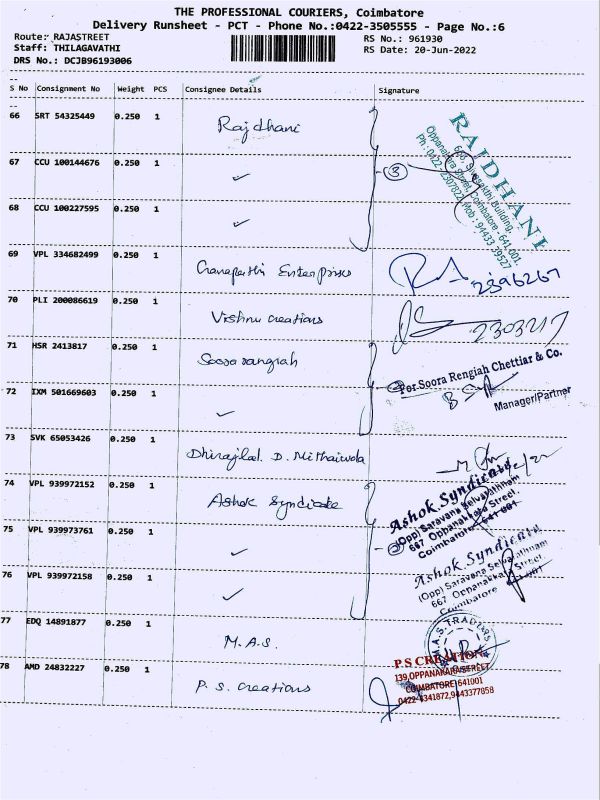 THE PROFESSIONAL COURIERS, Coimbatore
Delivery Runsheet - PCT - Phone No.:0422-3505555 - Page No.:6
Route: RAJASTREET
RS No.: 961930
Staff: THILAGAVATHI
RS Date: 20-Jun-2022
DRS No.: DCJB96193006
S No Consignment No Weight PCS Consignee Details Signature
66 SRT 54325449 0.250 1 Rajdhani
67 CCU 100144676 0.250 1 ✓
68 CCU 100227595 0.250 1 ✓
3
RAJDHANI
Sivasakthi Building,
Oppanakara Street, Coimbatore - 641 001.
69 VPL 334682499 0.250 1 Ganapathi Enterprises
2396267
70 PLI 200086619 0.250 1 Vishnu Creations
2303217
71 HSR 2413817 0.250 1 Soora rangiah
For Soora Rengiah Chettiar & Co.
Manager/Partner
72 IXM 501669603 0.250 1 ✓
73 SVK 65053426 0.250 1 Dhirajlal. D. Mithaiwala
74 VPL 939972152 0.250 1 Ashok Syndicate
Ashok Syndicate
(Opp) Saravana Selvarathnam
667 Oppanakkara Street.
Coimbatore - 641 001
75 VPL 939973761 0.250 1 ✓
Ashok Syndicate
(Opp) Saravana Selvarathnam
667 Oppanakkara Street
Coimbatore
76 VPL 939972158 0.250 1 ✓
77 EDQ 14891877 0.250 1 M.A.S.
M.A.S. TRADERS
78 AMD 24832227 0.250 1 P. S. Creations
P S CREATIONS
139, OPPANAKARA STREET
COIMBATORE 641001
0422-4341872, 9443377058